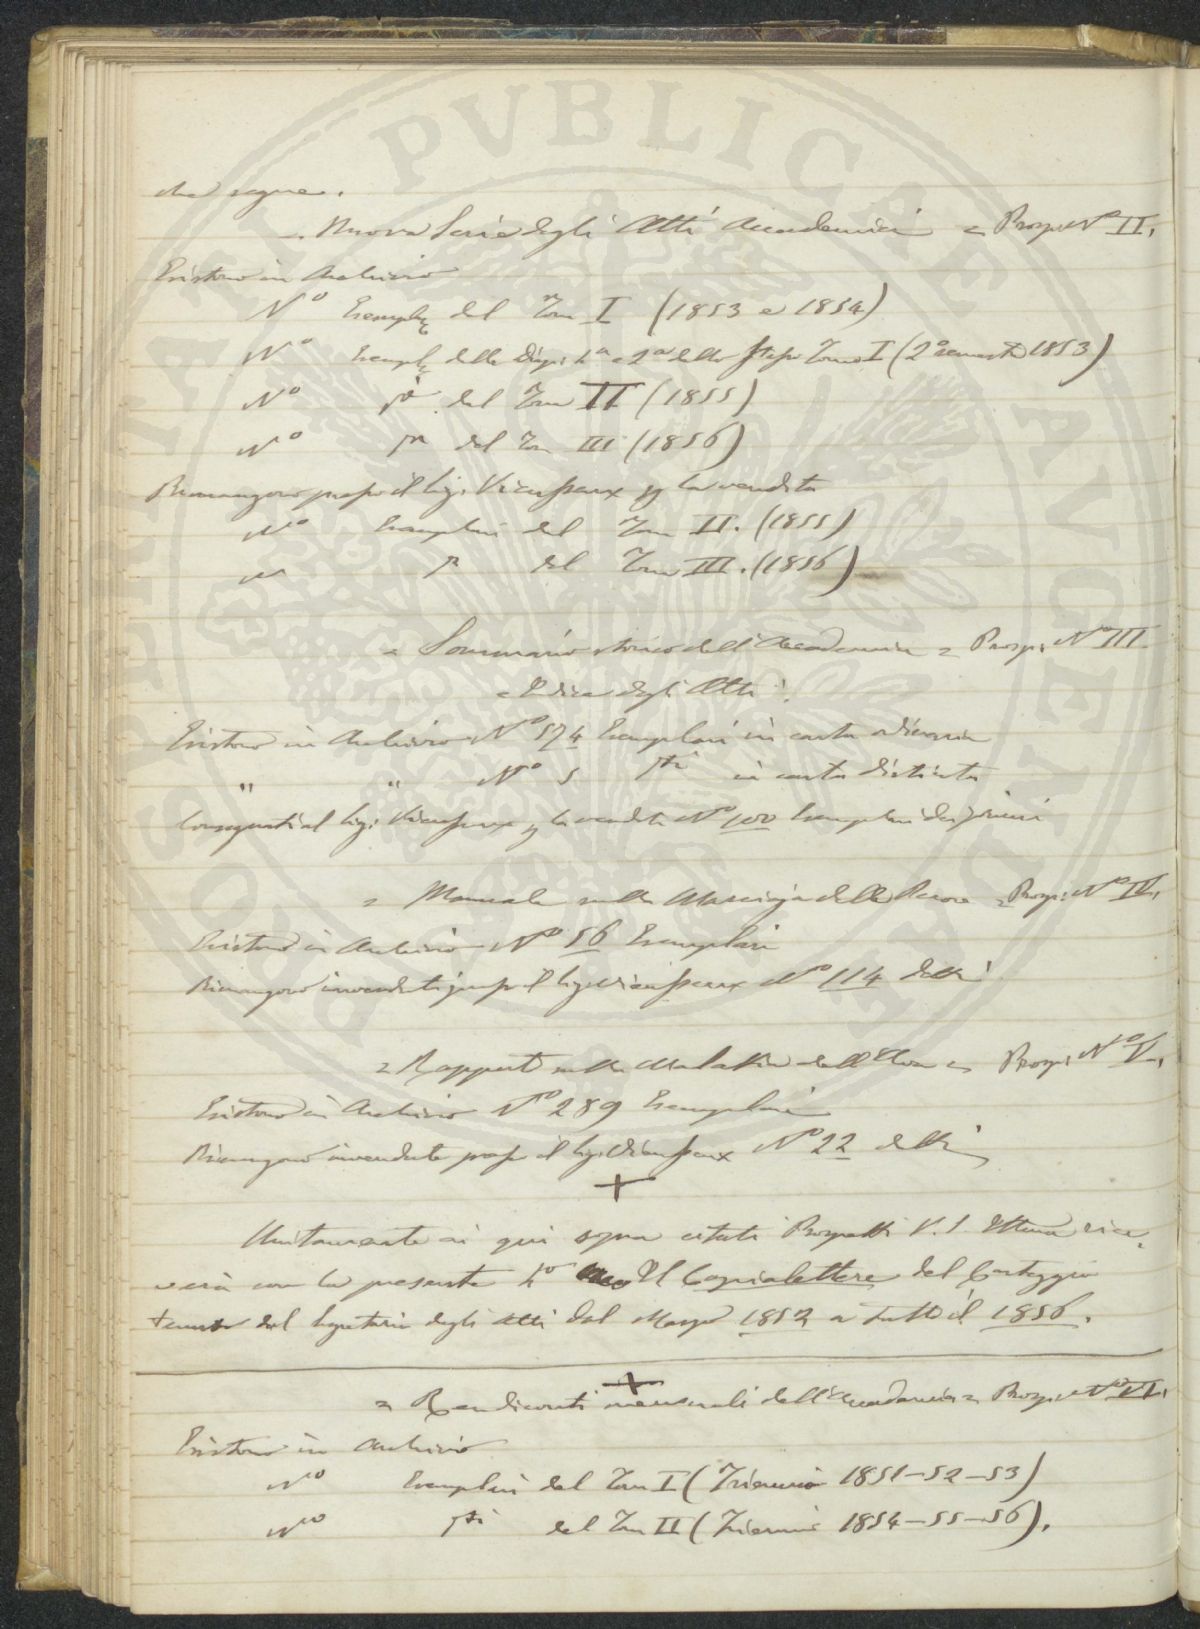 che segue.
= Nuova Serie degli Atti Accademici = Prosp: Nº II.
Esistono in Archivio
Nº Esempl. del Tom I (1853 e 1854)
Nº Esempl. delle Disp: 1ª e 2ª dello stesso Tomo I (2º semestre 1853)
Nº del Tom II (1855)
Nº del Tom III (1856)
Rimangono presso il Sig. Vieusseux p la vendita
Nº Esemplari del Tom II. (1855)
del Tom III. (1856)
= Sommario storico dell'Accademia = Prosp: Nº III.
e Indice degli Atti
Esistono in Archivio Nº 574 Esemplari in carta ordinaria
" " Nº 5 in carta distinta
Consegnati al Sig: Vieusseux p la vendita Nº 100 Esemplari dei primi
= Manuale sulla delle Pecore = Prosp: Nº IV.
Esistono in Archivio Nº 56 Esemplari
Rimangono invenduti presso il Sig. Vieusseux Nº 114 detti
= Rapporto sulla Malattia dell'Uva = Prosp: Nº V.
Esistono in Archivio Nº 289 Esemplari
Rimangono invendute presso il Sig. Vieusseux Nº 22 detti
+
Unitamente ai qui sopra citati Prospetti V.S. Ill.ma rice-
verà con la presente Il Copialettere del Carteggio
tenuto dal Segretario degli Atti dal Marzo 1852 a tutto il 1856.
+
= Rendiconti mensuali dell'Accademia = Prosp: Nº VI.
Esistono in Archivio
Nº Esemplari del Tom I (Triennio 1851-52-53)
Nº del Tom II (Triennio 1854-55-56).
PVBLICAE
AVGENDAE
PROSPERITATI